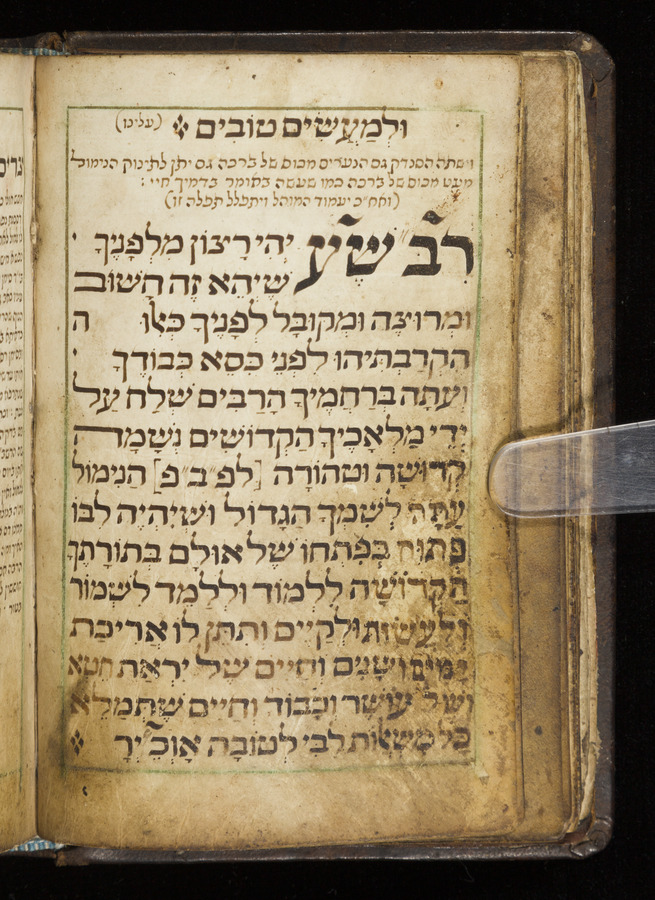 וּלְמַעֲשִׂים טוֹבִים (עלינו)
וישתה הסנדק גם הנערים מכוס של ברכה גם יתן לתינוק הנימול
מעט מכוס של ברכה כמו שעשה באומר בדמיך חיי :
(ואח״כ יעמוד המוהל ויתפלל תפלה זו)
רִבֹּ״ שֶׁ״ע יְהִי רָצוֹן מִלְּפָנֶיךָ
שֶׁיְּהֵא זֶה חָשׁוּב
וּמְרוּצֶה וּמְקוּבָּל לְפָנֶיךָ כְּאִלּוּ ה
הִקְרַבְתִּיהוּ לִפְנֵי כִּסֵּא כְּבוֹדֶךָ
וְעַתָּה בְּרַחֲמֶיךָ הָרַבִּים שְׁלַח עַל
יְדֵי מַלְאָכֶיךָ הַקְּדוֹשִׁים נְשָׁמָה
קְדוֹשָׁה וּטְהוֹרָה [לפ״ב״פ] הַנִּימוֹל
עַתָּה לְשִׁמְךָ הַגָּדוֹל וְשֶׁיִּהְיֶה לִבּוֹ
פָּתוּחַ כְּפִתְחוֹ שֶׁל אוּלָם בְּתוֹרָתְךָ
הַקְּדוֹשָׁה לִלְמוֹד וּלְלַמֵּד לִשְׁמוֹר
וְלַעֲשׂוֹת וּלְקַיֵּים וְתִתֶּן לוֹ אֲרִיכַת
יָמִים וְשָׁנִים וְחַיִּים שֶׁל יִרְאַת חֵטְא
וְשֶׁל עוֹשֶׁר וְכָבוֹד וְחַיִּים שֶׁתְּמַלֵּא
כָּל מִשְׁאֲלוֹת לִבִּי לְטוֹבָה אָוכִּ״יר